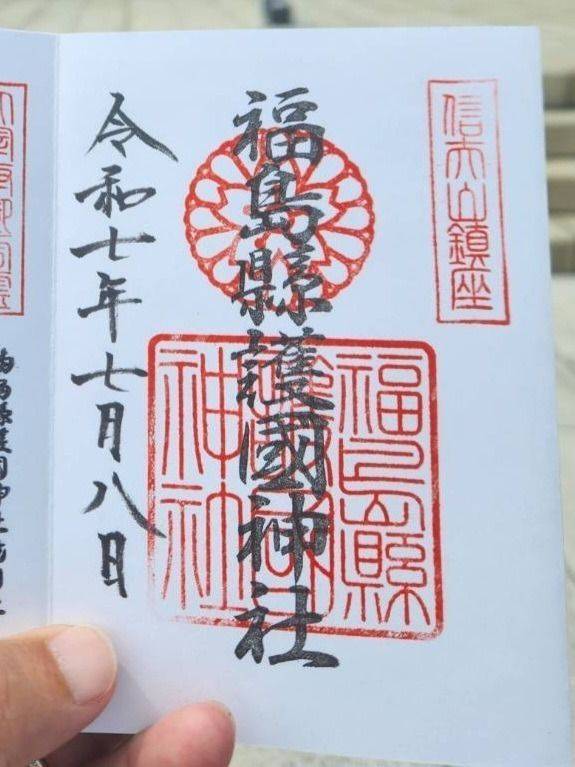 信夫山鎮座
福島縣護國神社
福島縣
護國
神社
令和七年七月八日